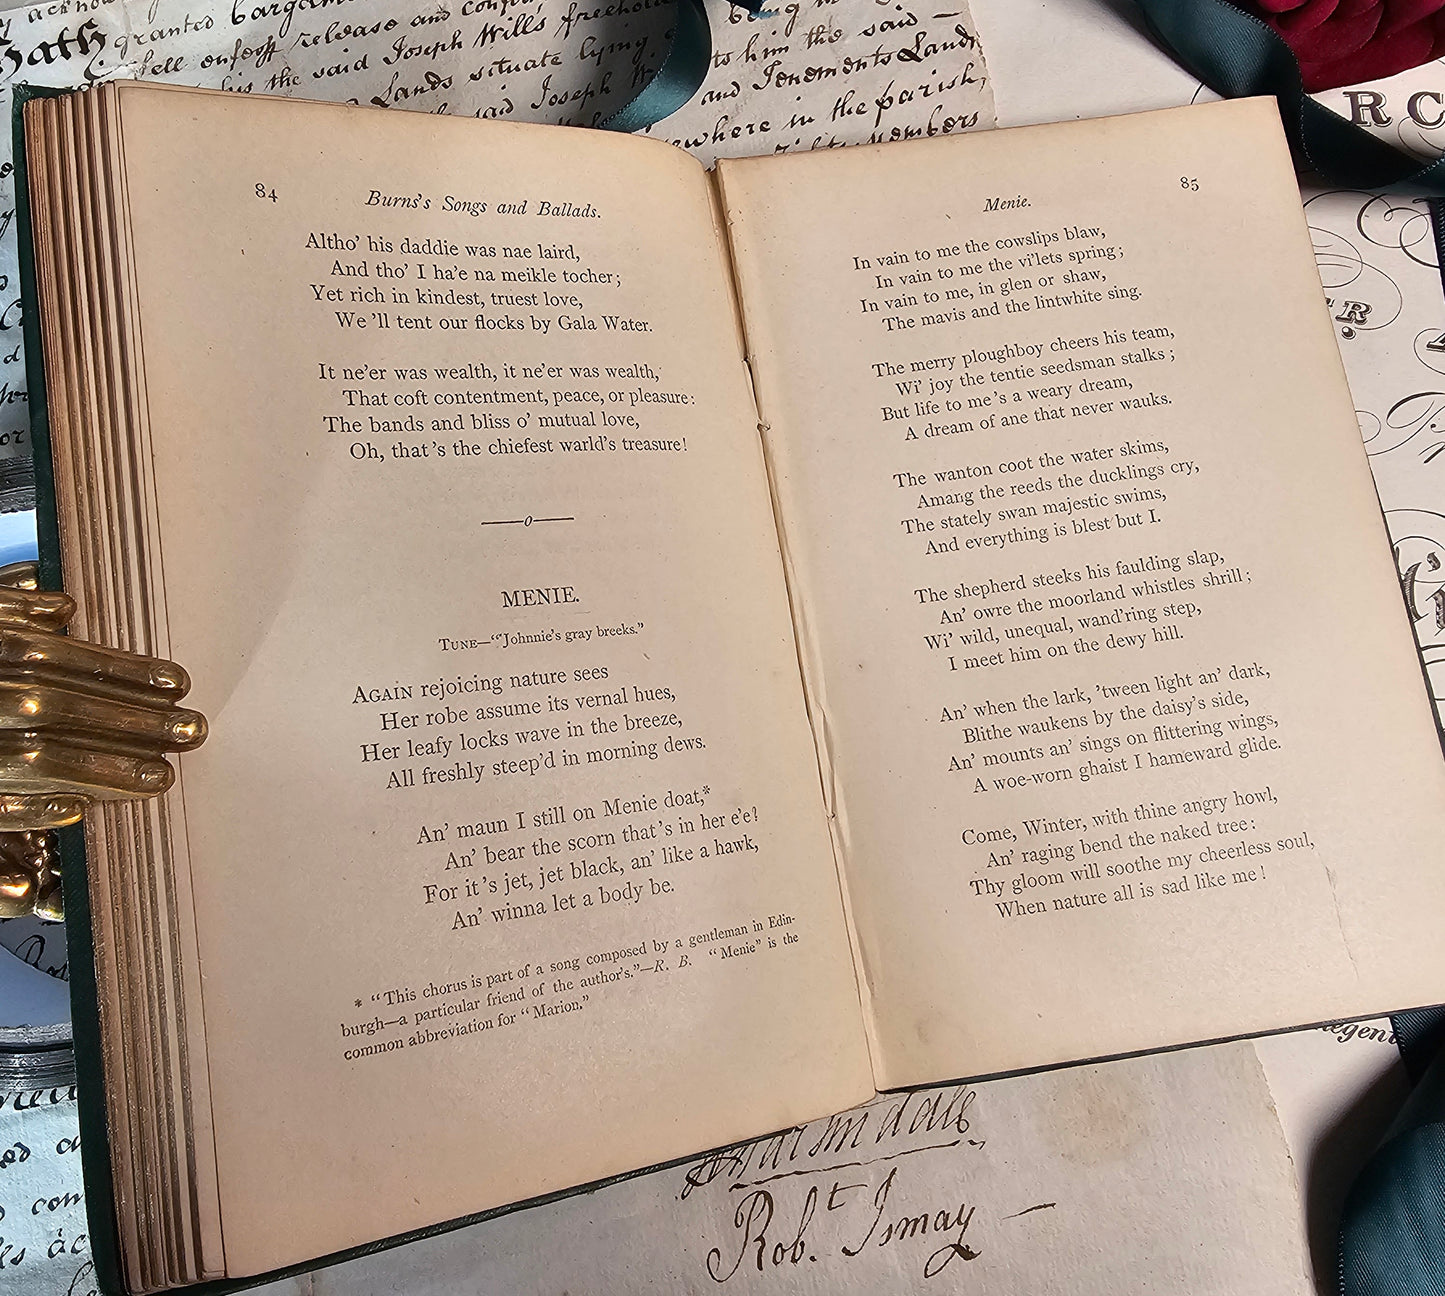 granted
enfeoff release and
his the said Joseph Wills freehold
Lands situate lying
said Joseph
being
to him the said —
and Tenements Lands
ewhere in the parish,
Members
RC
84
Burns's Songs and Ballads.
Altho' his daddie was nae laird,
And tho' I ha'e na meikle tocher;
Yet rich in kindest, truest love,
We'll tent our flocks by Gala Water.
It ne'er was wealth, it ne'er was wealth,
That coft contentment, peace, or pleasure:
The bands and bliss o' mutual love,
Oh, that's the chiefest warld's treasure!
MENIE.
TUNE—"Johnnie's gray breeks."
AGAIN rejoicing nature sees
Her robe assume its vernal hues,
Her leafy locks wave in the breeze,
All freshly steep'd in morning dews.
An' maun I still on Menie doat,*
An' bear the scorn that's in her e'e?
For it's jet, jet black, an' like a hawk,
An' winna let a body be.
* "This chorus is part of a song composed by a gentleman in Edin-
burgh—a particular friend of the author's."—R. B. "Menie" is the
common abbreviation for "Marion."
85
Menie.
In vain to me the cowslips blaw,
In vain to me the vi'lets spring;
In vain to me, in glen or shaw,
The mavis and the lintwhite sing.
The merry ploughboy cheers his team,
Wi' joy the tentie seedsman stalks;
But life to me's a weary dream,
A dream of ane that never wauks.
The wanton coot the water skims,
Amang the reeds the ducklings cry,
The stately swan majestic swims,
And everything is blest but I.
The shepherd steeks his faulding slap,
An' owre the moorland whistles shrill;
Wi' wild, unequal, wand'ring step,
I meet him on the dewy hill.
An' when the lark, 'tween light an' dark,
Blithe waukens by the daisy's side,
An' mounts an' sings on flittering wings,
A woe-worn ghaist I hameward glide.
Come, Winter, with thine angry howl,
An' raging bend the naked tree:
Thy gloom will soothe my cheerless soul,
When nature all is sad like me!
Robt. Ismay